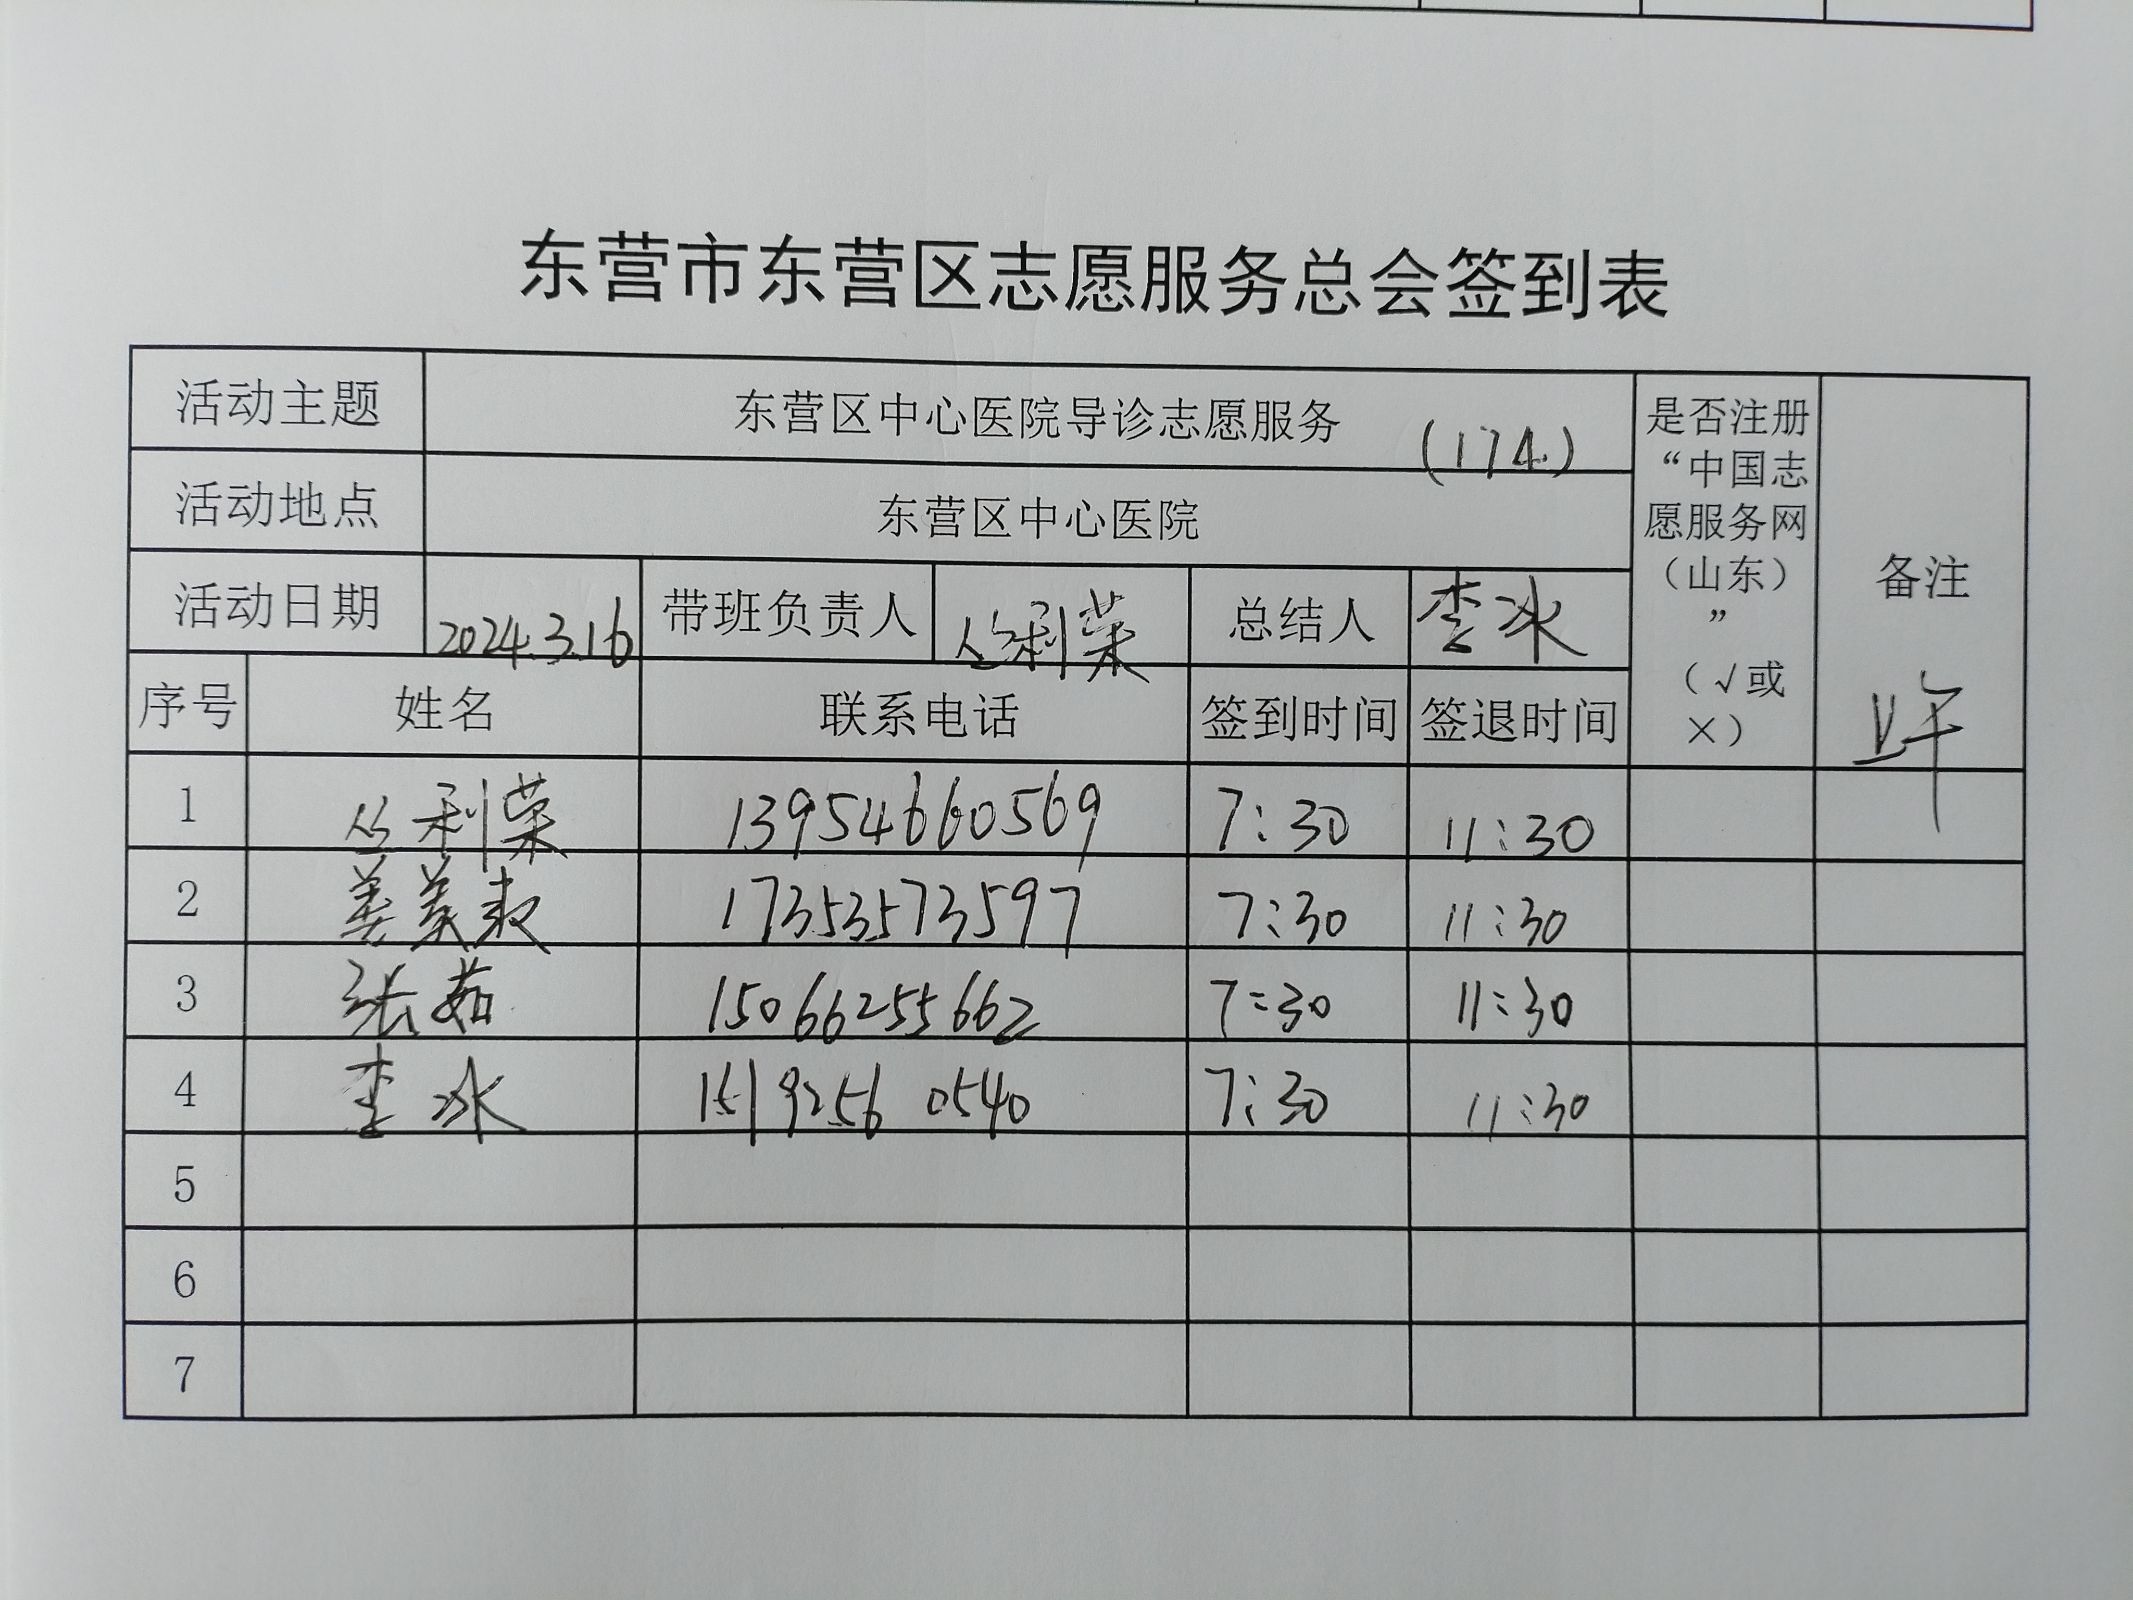 东营市东营区志愿服务总会签到表
活动主题 东营区中心医院导诊志愿服务 (174.)
活动地点 东营区中心医院
活动日期 2024.3.16 带班负责人 丛利荣 总结人 李冰
是否注册
“中国志
愿服务网
（山东）
”
（√或
×）
备注
上午
序号 姓名 联系电话 签到时间 签退时间
1 丛利荣 13954660569 7:30 11:30
2 姜美 17353573597 7:30 11:30
3 张茹 15066255662 7:30 11:30
4 李冰 15192560540 7:30 11:30
5
6
7